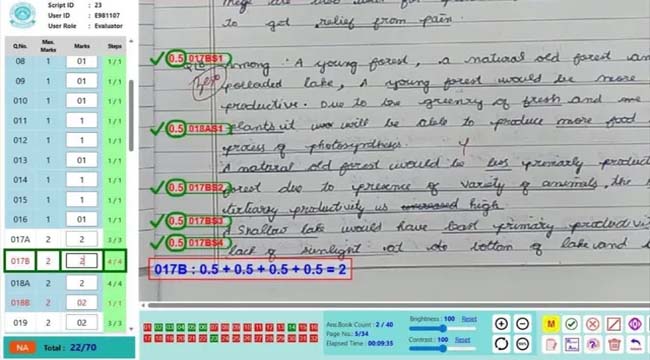 Script ID : 23
User ID : E981107
User Role : Evaluator
Q.No. Max. Marks Marks Steps
08 1 01 1/1
09 1 01 1/1
010 1 01 1/1
011 1 1 1/1
012 1 1 1/1
013 1 01 1/1
014 1 1 1/1
015 1 1 1/1
016 1 01 1/1
017A 2 2 3/3
017B 2 2 4/4
018A 2 2 4/4
018B 2 02 1/1
019 2 02 3/3
NA Total : 22/70
to get relief from pain.
0.5 017BS1 Among : A young forest, a natural old forest an
polluted lake, A young forest would be more
productive. Due to greenry of fresh and
0.5 018AS1 plants it will be able to produce more food
process of photosynthesys.
A natural old forest would be less primarly product
0.5 017BS2 forest due to presence of variety of animals, the
tertiary productivity is high
0.5 017BS3 A shallow lake would have least primary productivi
0.5 017BS4 lack of sunlight at bottom of lake and
017B : 0.5 + 0.5 + 0.5 + 0.5 = 2
Ans.Book Count : 2 / 40
Page No.: 5/34
Elapsed Time : 00:09:35
Brightness : 100 Reset
Contrast : 100 Reset
M